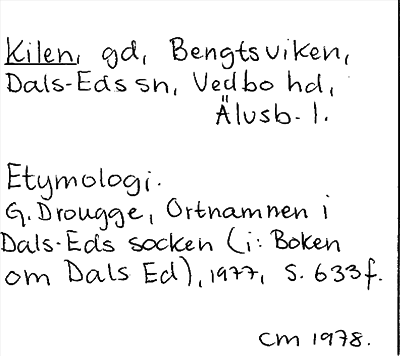 Kilen, gd, Bengtsviken,
Dals-Eds sn, Vedbo hd,
Älvsb. l.
Etymologi.
G. Drougge, Ortnamnen i
Dals-Eds socken (i: Boken
om Dals Ed), 1977, s. 633 f.
CM 1978.